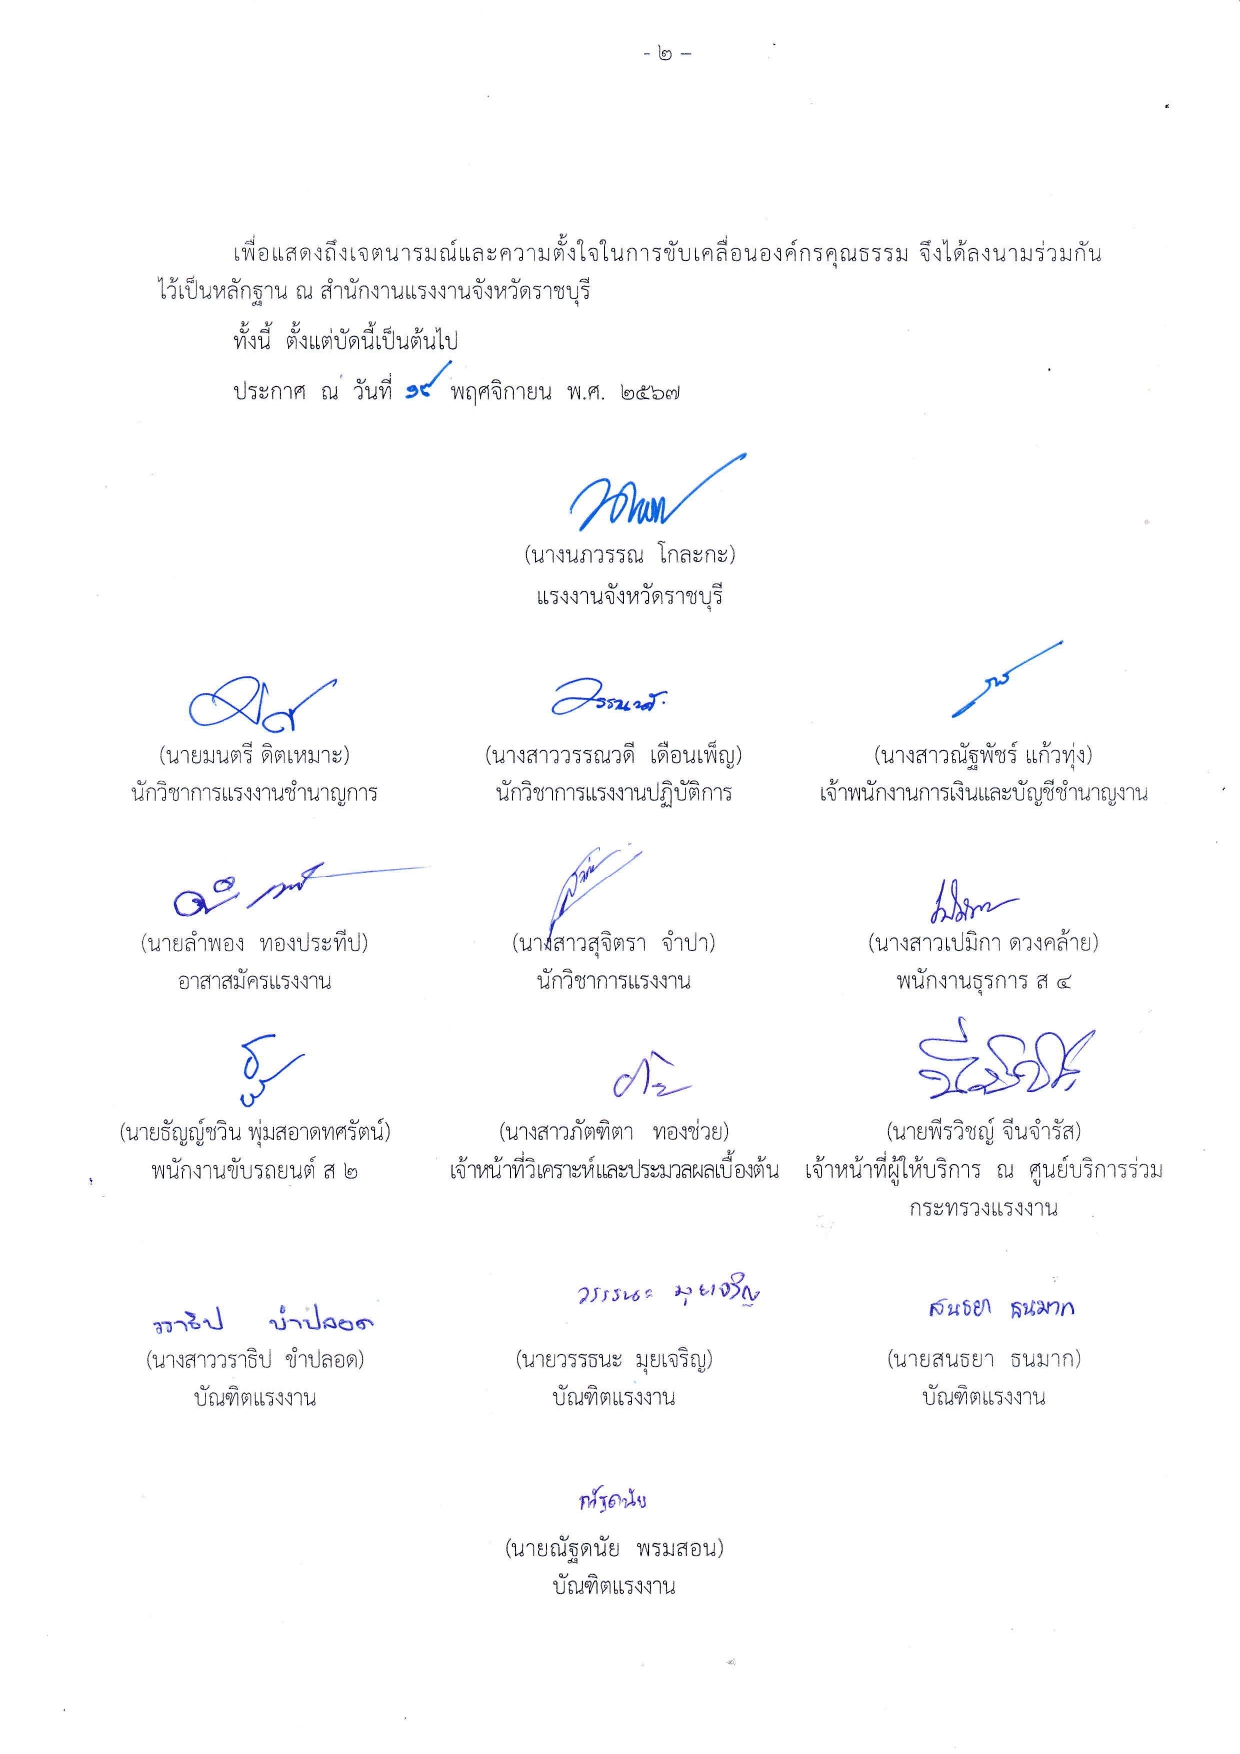 - ๒ -
เพื่อแสดงถึงเจตนารมณ์และความตั้งใจในการขับเคลื่อนองค์กรคุณธรรม จึงได้ลงนามร่วมกัน
ไว้เป็นหลักฐาน ณ สำนักงานแรงงานจังหวัดราชบุรี
ทั้งนี้ ตั้งแต่บัดนี้เป็นต้นไป
ประกาศ ณ วันที่ ๑๙ พฤศจิกายน พ.ศ. ๒๕๖๗
(นางนภวรรณ โกละกะ)
แรงงานจังหวัดราชบุรี
(นายมนตรี ดิตเหมาะ) (นางสาววรรณวดี เดือนเพ็ญ) (นางสาวณัฐพัชร์ แก้วทุ่ง)
นักวิชาการแรงงานชำนาญการ นักวิชาการแรงงานปฏิบัติการ เจ้าพนักงานการเงินและบัญชีชำนาญงาน
(นายลำพอง ทองประทีป) (นางสาวสุจิตรา จำปา) (นางสาวเปมิกา ดวงคล้าย)
อาสาสมัครแรงงาน นักวิชาการแรงงาน พนักงานธุรการ ส ๔
(นายธัญญ์ชวิน พุ่มสอาดทศรัตน์) (นางสาวภัตฑิตา ทองช่วย) (นายพีรวิชญ์ จีนจำรัส)
พนักงานขับรถยนต์ ส ๒ เจ้าหน้าที่วิเคราะห์และประมวลผลเบื้องต้น เจ้าหน้าที่ผู้ให้บริการ ณ ศูนย์บริการร่วม
กระทรวงแรงงาน
วราธิป ขำปลอด วรรธนะ มุยเจริญ สนธยา ธนมาก
(นางสาววราธิป ขำปลอด) (นายวรรธนะ มุยเจริญ) (นายสนธยา ธนมาก)
บัณฑิตแรงงาน บัณฑิตแรงงาน บัณฑิตแรงงาน
ณัฐดนัย
(นายณัฐดนัย พรมสอน)
บัณฑิตแรงงาน